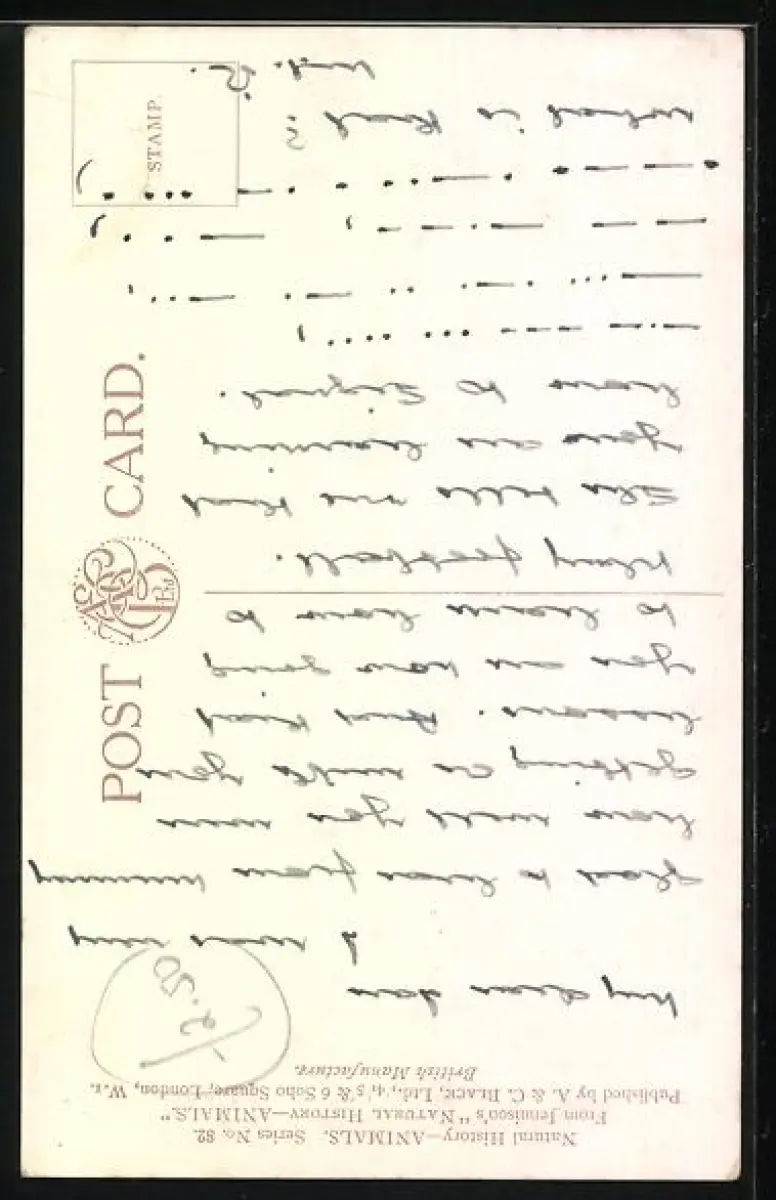 Natural History—ANIMALS. Series No. 82.
From Jennison's "NATURAL HISTORY—ANIMALS."
Published by A. & C. BLACK, Ltd., 4, 5, & 6 Soho Square, London, W.1.
British Manufacture.
POST CARD.
STAMP.
2.50
My dear
I was very
glad to hear from mummy
how well you were
getting on with your
lessons. And that
you are now going
to learn how to
play football.
She tells me that
you are learning
how to signal.
what is that?